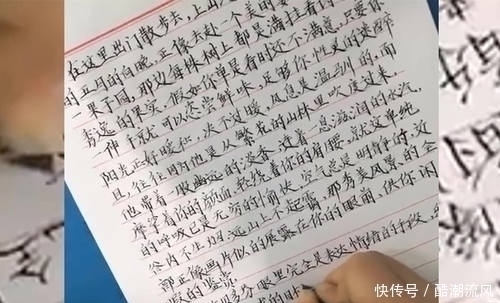 在这里出门散步去，上山
的五月的向晚，正像去赴一个美的
一果子园，那边每株树上都是满挂着
秀逸的果实，假如你单是看时还不满意，只要你
一伸手就可以恣尝鲜味，足够你性灵的迷醉
阳光正好暖和，决不过暖，风息是温驯的，而
且往往因为他是从繁花的山林里吹度过来，
他带着一股幽远的澹香，连着一息滋润的水汽，
摩挲着你的颜面，轻绕着你的肩腰，就这单纯
的呼吸已是无穷的愉快，空气总是明静的，近
谷内不生烟，远山上不起霭，那秀美风景的全
部正像画片似的展露在你的眼前，供你闲
暇的鉴赏。
眼里完全是表达情绪的手段，
快传号/酷潮流风